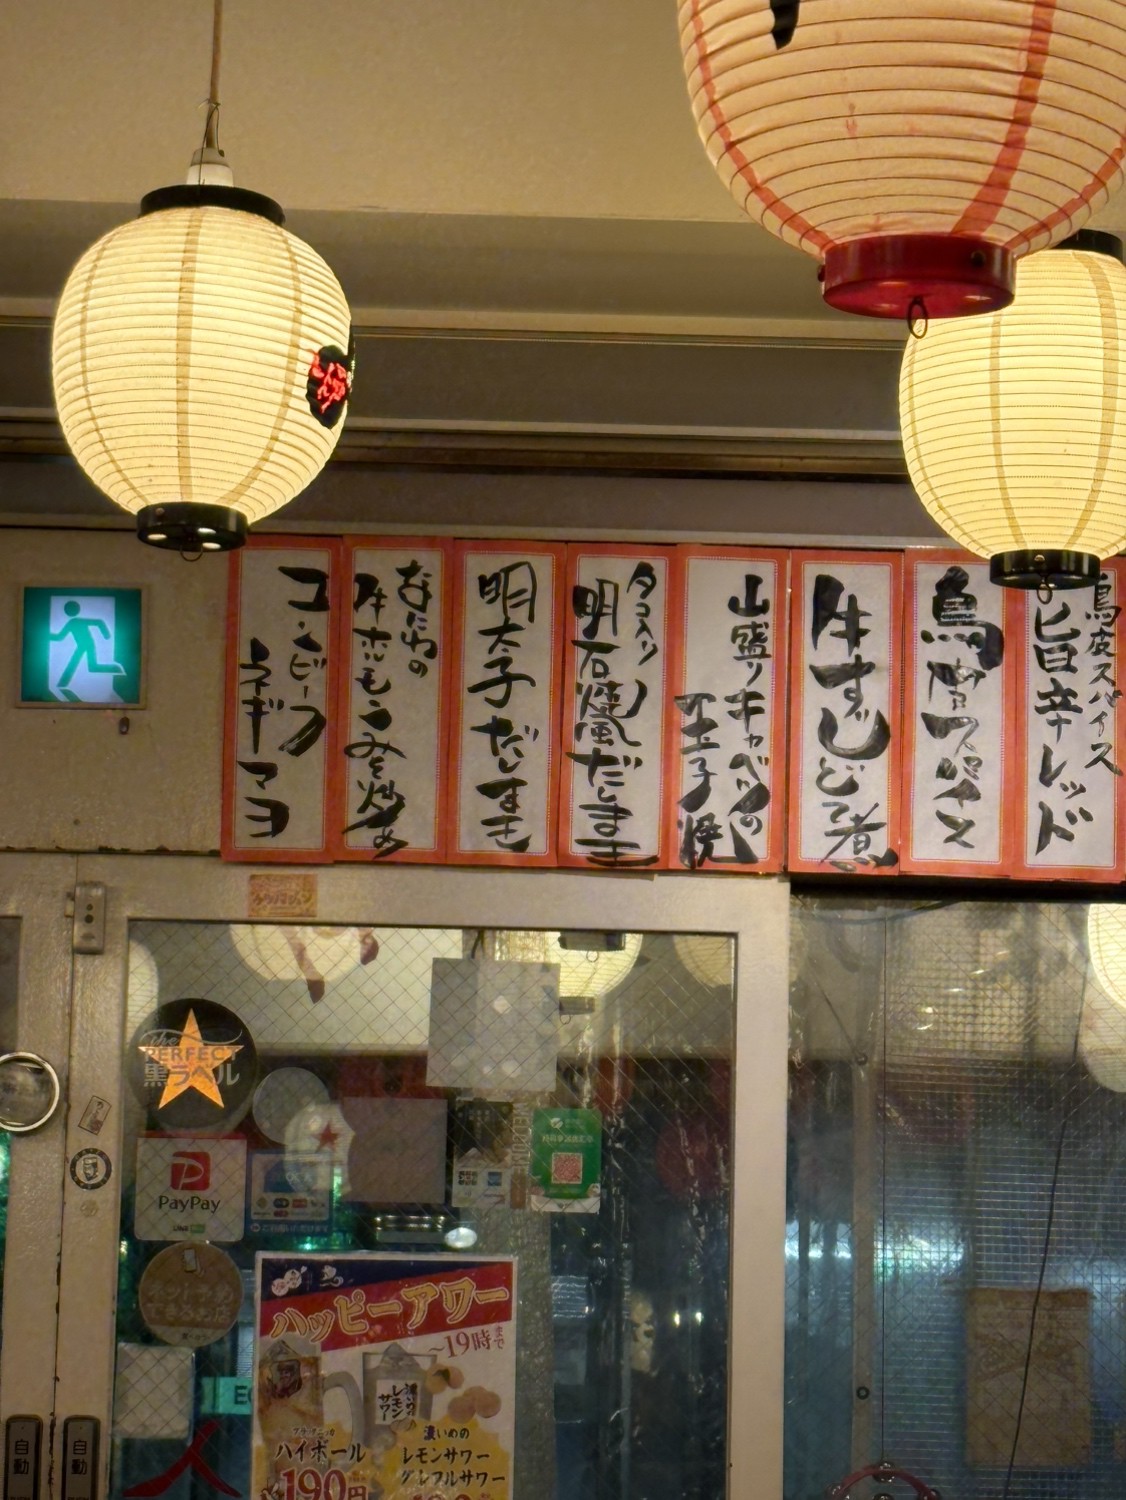 鳥皮スパイス
旨辛レッド
鳥皮スパイス
牛すじどて煮
山盛りキャベツの
玉子焼
タコ入り
明石焼風だしまき
明太子だしまき
なにわの
牛ホルモンうみそ炒め
コンビーフ
ネギマヨ
the
PERFECT
黒ラベル
PayPay
ハッピーアワー
~19時まで
濃いめの
レモンサワー
ハイボール
190円
濃いめの
レモンサワー
グレフルサワー
自動
自動